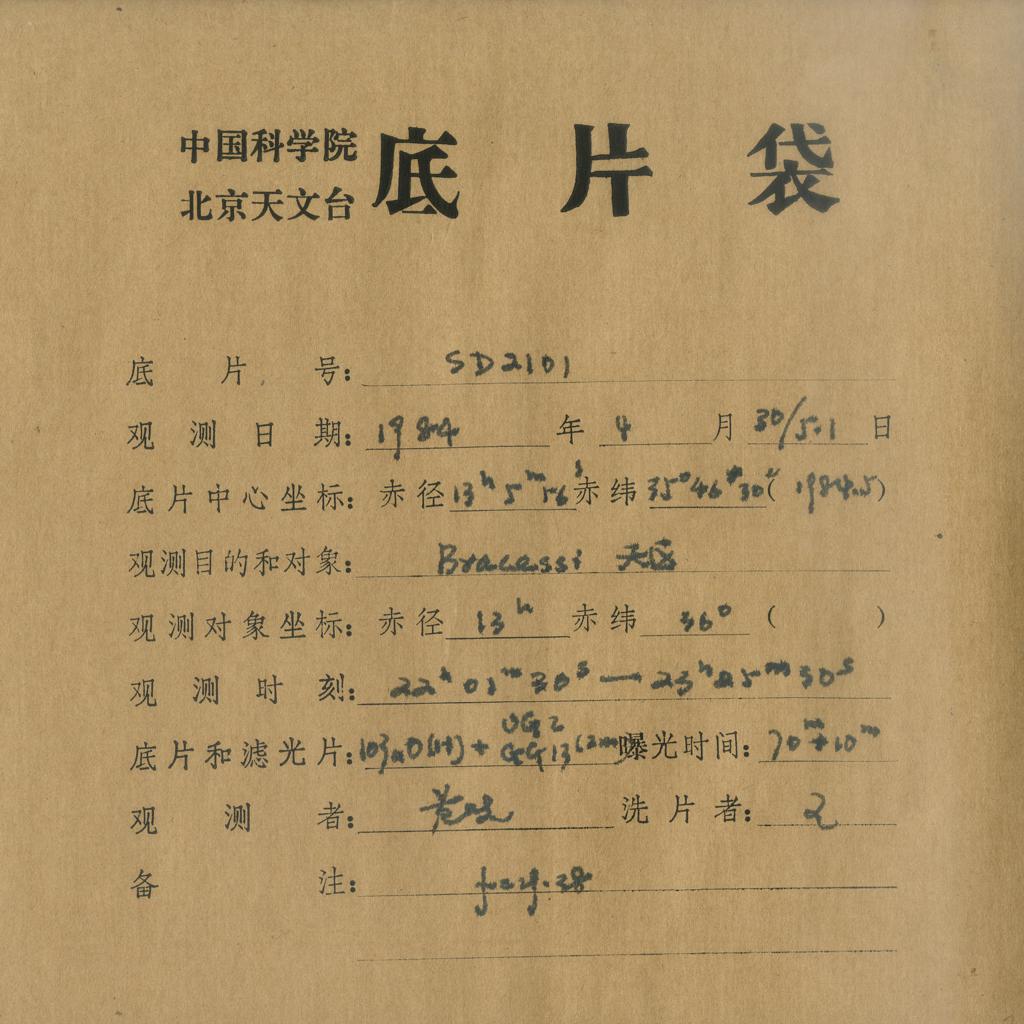 中国科学院
北京天文台
底片袋
底片号: SD2101
观测日期: 1984年4月30/5.1日
底片中心坐标: 赤径13h5m56s赤纬35°46′30″(1984.5)
观测目的和对象: Braccssi 天区
观测对象坐标: 赤径13h赤纬36°( )
观测时刻: 22h01m30s—23h25m30s
底片和滤光片: 103aO(H)+ UG2 GG13(2mm)曝光时间: 70m+10m
观测者: 洗片者:
备注: